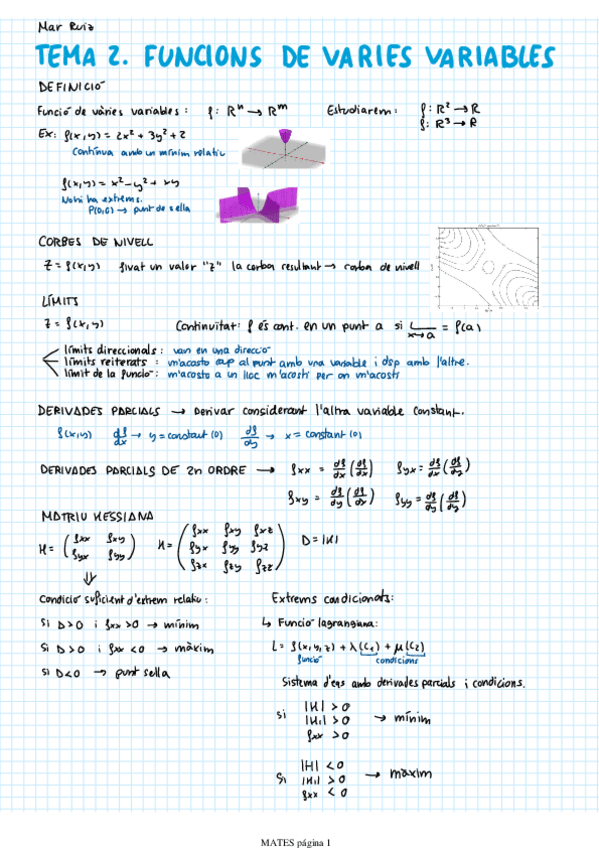 Mar Ruiz
TEMA 2. FUNCIONS DE VARIES VARIABLES
DEFINICIÓ
Funció de vàries variables: f: Rⁿ → Rᵐ Estudiarem: f: R² → R
f: R³ → R
Ex: f(x,y) = 2x² + 3y² + 2
Contínua amb un mínim relatiu
f(x,y) = x² - y² + xy
No hi ha extrems.
P(0,0) → punt de sella
CORBES DE NIVELL
Z = f(x,y) fixat un valor "z" la corba resultant → corba de nivell :
LÍMITS
Z = f(x,y) Continuïtat: f és cont. en un punt a si L x→a = f(a)
límits direccionals: van en una direcció
límits reiterats: m'acosto cap al punt amb una variable i dsp amb l'altre.
límit de la funció: m'acosto a un lloc m'acosti per on m'acosti
DERIVADES PARCIALS → Derivar considerant l'altra variable constant.
f(x,y) df/dx → y = constant (0) df/dy → x = constant (0)
DERIVADES PARCIALS DE 2n ORDRE → fxx = df/dx (df/dx) fyx = df/dx (df/dy)
fxy = df/dy (df/dx) fyy = df/dy (df/dy)
MATRIU HESSIANA
H = (fxx fxy
fyx fyy) H = (fxx fxy fxz
fyx fyy fyz
fzx fzy fzz) D = |H|
Condició suficient d'extrem relatiu:
Si D>0 i fxx >0 → mínim
Si D>0 i fxx <0 → màxim
Si D<0 → punt sella
Extrems condicionats:
↳ Funció lagrangiana:
L = f(x,y,z) + λ(C₁) + μ(C₂)
funció condicions
Sistema d'eqs amb derivades parcials i condicions.
Si |H| > 0
|H₁| > 0 → mínim
fxx > 0
Si |H| < 0
|H₁| > 0 → màxim
fxx < 0
MATES página 1